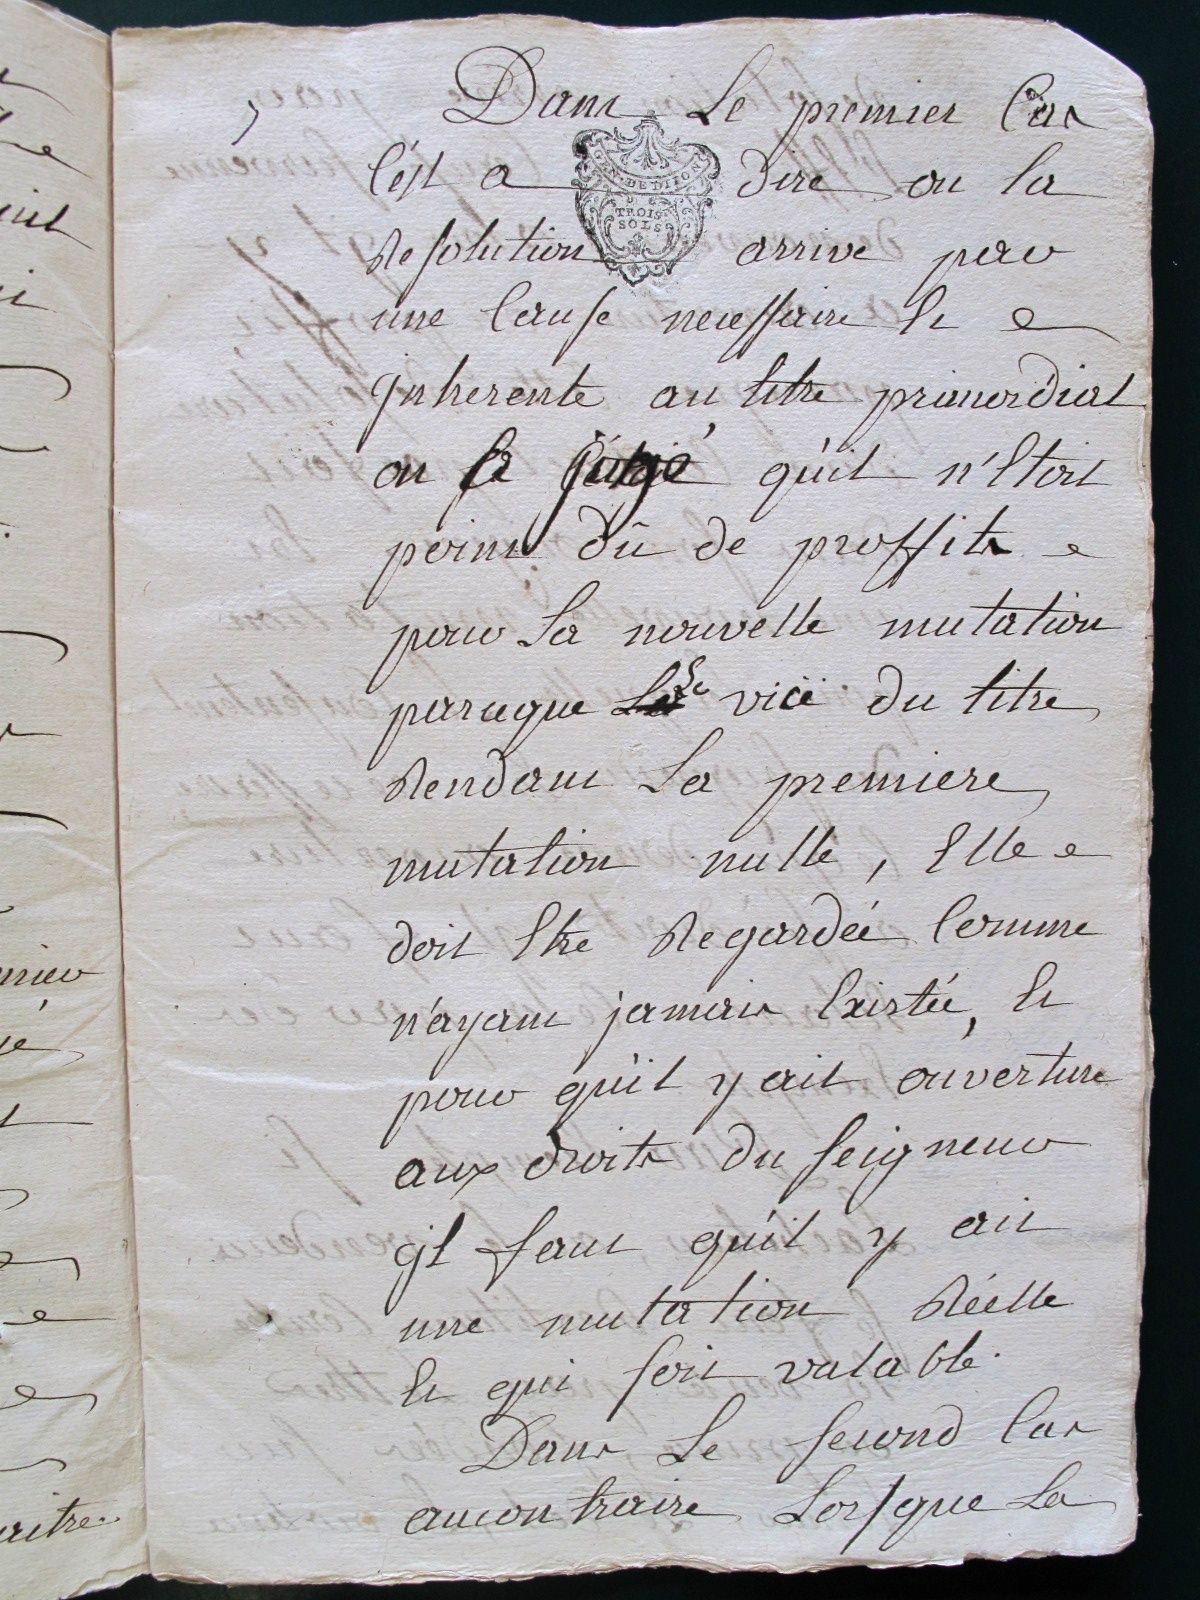 Dans Le premier Cas
C'est a dire ou la
Resolution arrive par
GEN. DE DIJON
TROIS
SOLS
une Cause necessaire Et
inherente au titre primordial
on a jugé qu'il n'Etoit
point dû de proffits
pour La nouvelle mutation
parceque Le vice du titre
Rendant La premiere
mutation nulle, Elle
doit Etre Regardée Comme
n'ayant jamais Existée, Et
pour qu'il y ait ouverture
aux droits du seigneur
il faut qu'il y ait
une mutation Réelle
Et qui soit valable.
Dans Le second Cas
aucontraire Lorsque La